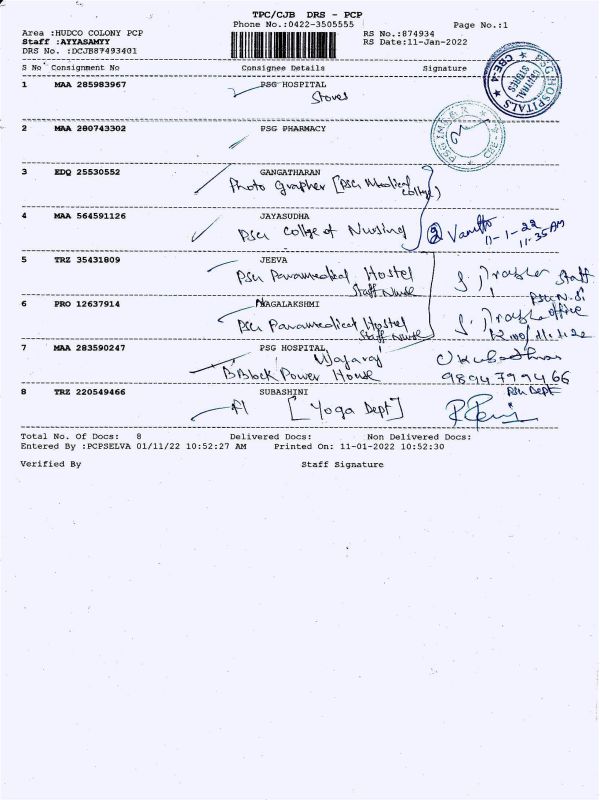 TPC/CJB DRS - PCP
Phone No.:0422-3505555 Page No.:1
Area :HUDCO COLONY PCP RS No.:874934
Staff :AYYASAMYY RS Date:11-Jan-2022
DRS No. :DCJB87493401
S No Consignment No Consignee Details Signature
1 MAA 285983967 PSG HOSPITAL
Stores
PSG HOSPITALS CBE-4
CENTRAL STORES
2 MAA 280743302 PSG PHARMACY
3 EDQ 25530552 GANGATHARAN
Photo grapher [PSG Medical College)
4 MAA 564591126 JAYASUDHA
PSG College of Nursing
11-1-22
11.35 AM
5 TRZ 35431809 JEEVA
PSG Paramedical Hostel
Staff Nurse
Staff
6 PRO 12637914 NAGALAKSHMI
PSG Paramedical Hostel
Staff Nurse
office
7 MAA 283590247 PSG HOSPITAL
B Block Power House
9894799466
8 TRZ 220549466 SUBASHINI
[Yoga Dept]
Total No. Of Docs: 8 Delivered Docs: Non Delivered Docs:
Entered By :PCPSELVA 01/11/22 10:52:27 AM Printed On: 11-01-2022 10:52:30
Verified By Staff Signature